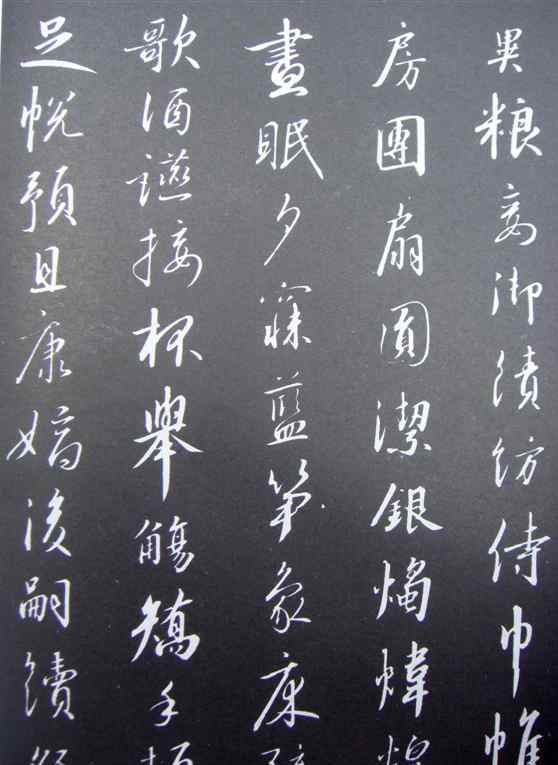 異粮妾御績紡侍巾帷
房團扇圓潔銀燭煒煌
晝眠夕寐藍笋象床
歌酒讌接杯舉觴矯手頓
足悅豫且康嫡後嗣續